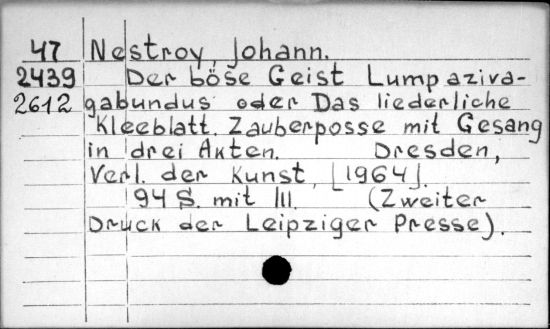 47 Nestroy, Johann.
2439 Der böse Geist Lumpaziva-
2612 gabundus oder Das liederliche
Kleeblatt. Zauberposse mit Gesang
in drei Akten. Dresden,
Verl. der Kunst, [1964].
94 S. mit Ill. (Zweiter
Druck der Leipziger Presse).